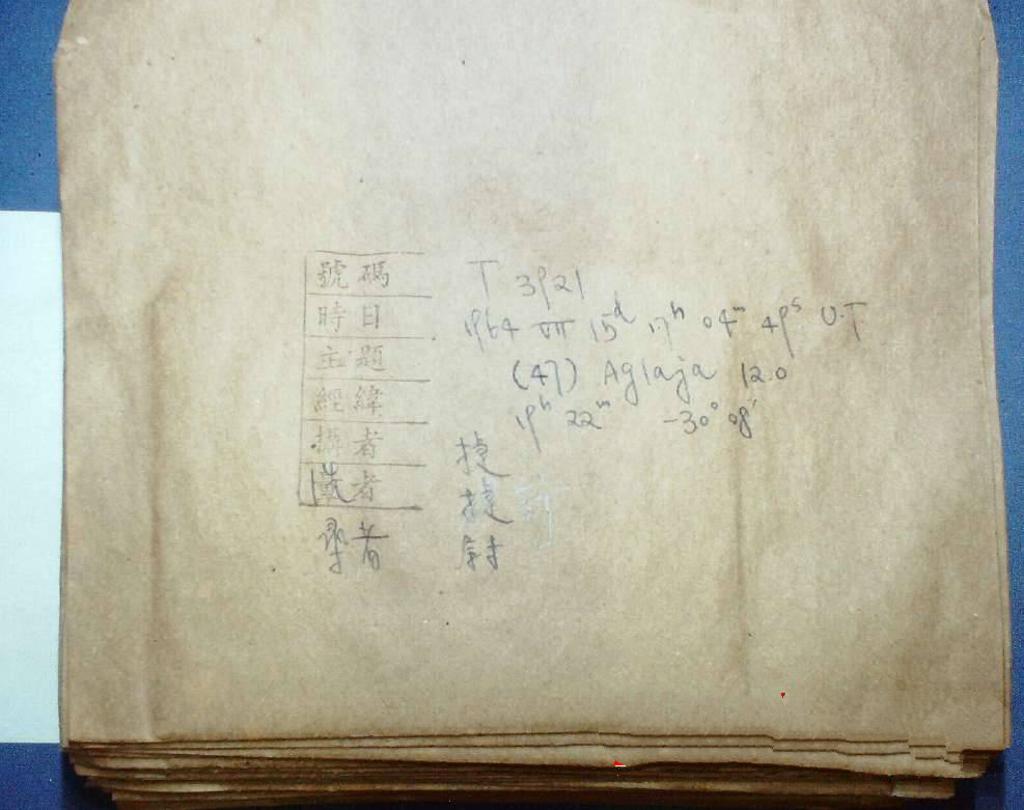 號碼 T 3921
時日 1964 VII 15d 17h 04m 49s U.T
主題 (47) Aglaja 12.0
經緯 19h 22m -30° 08'
攝者 捷
者 捷
者